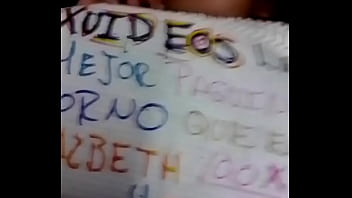 XVIDEOS
MEJOR PAGUIN
ORNO QUE E
ZBETH 100%